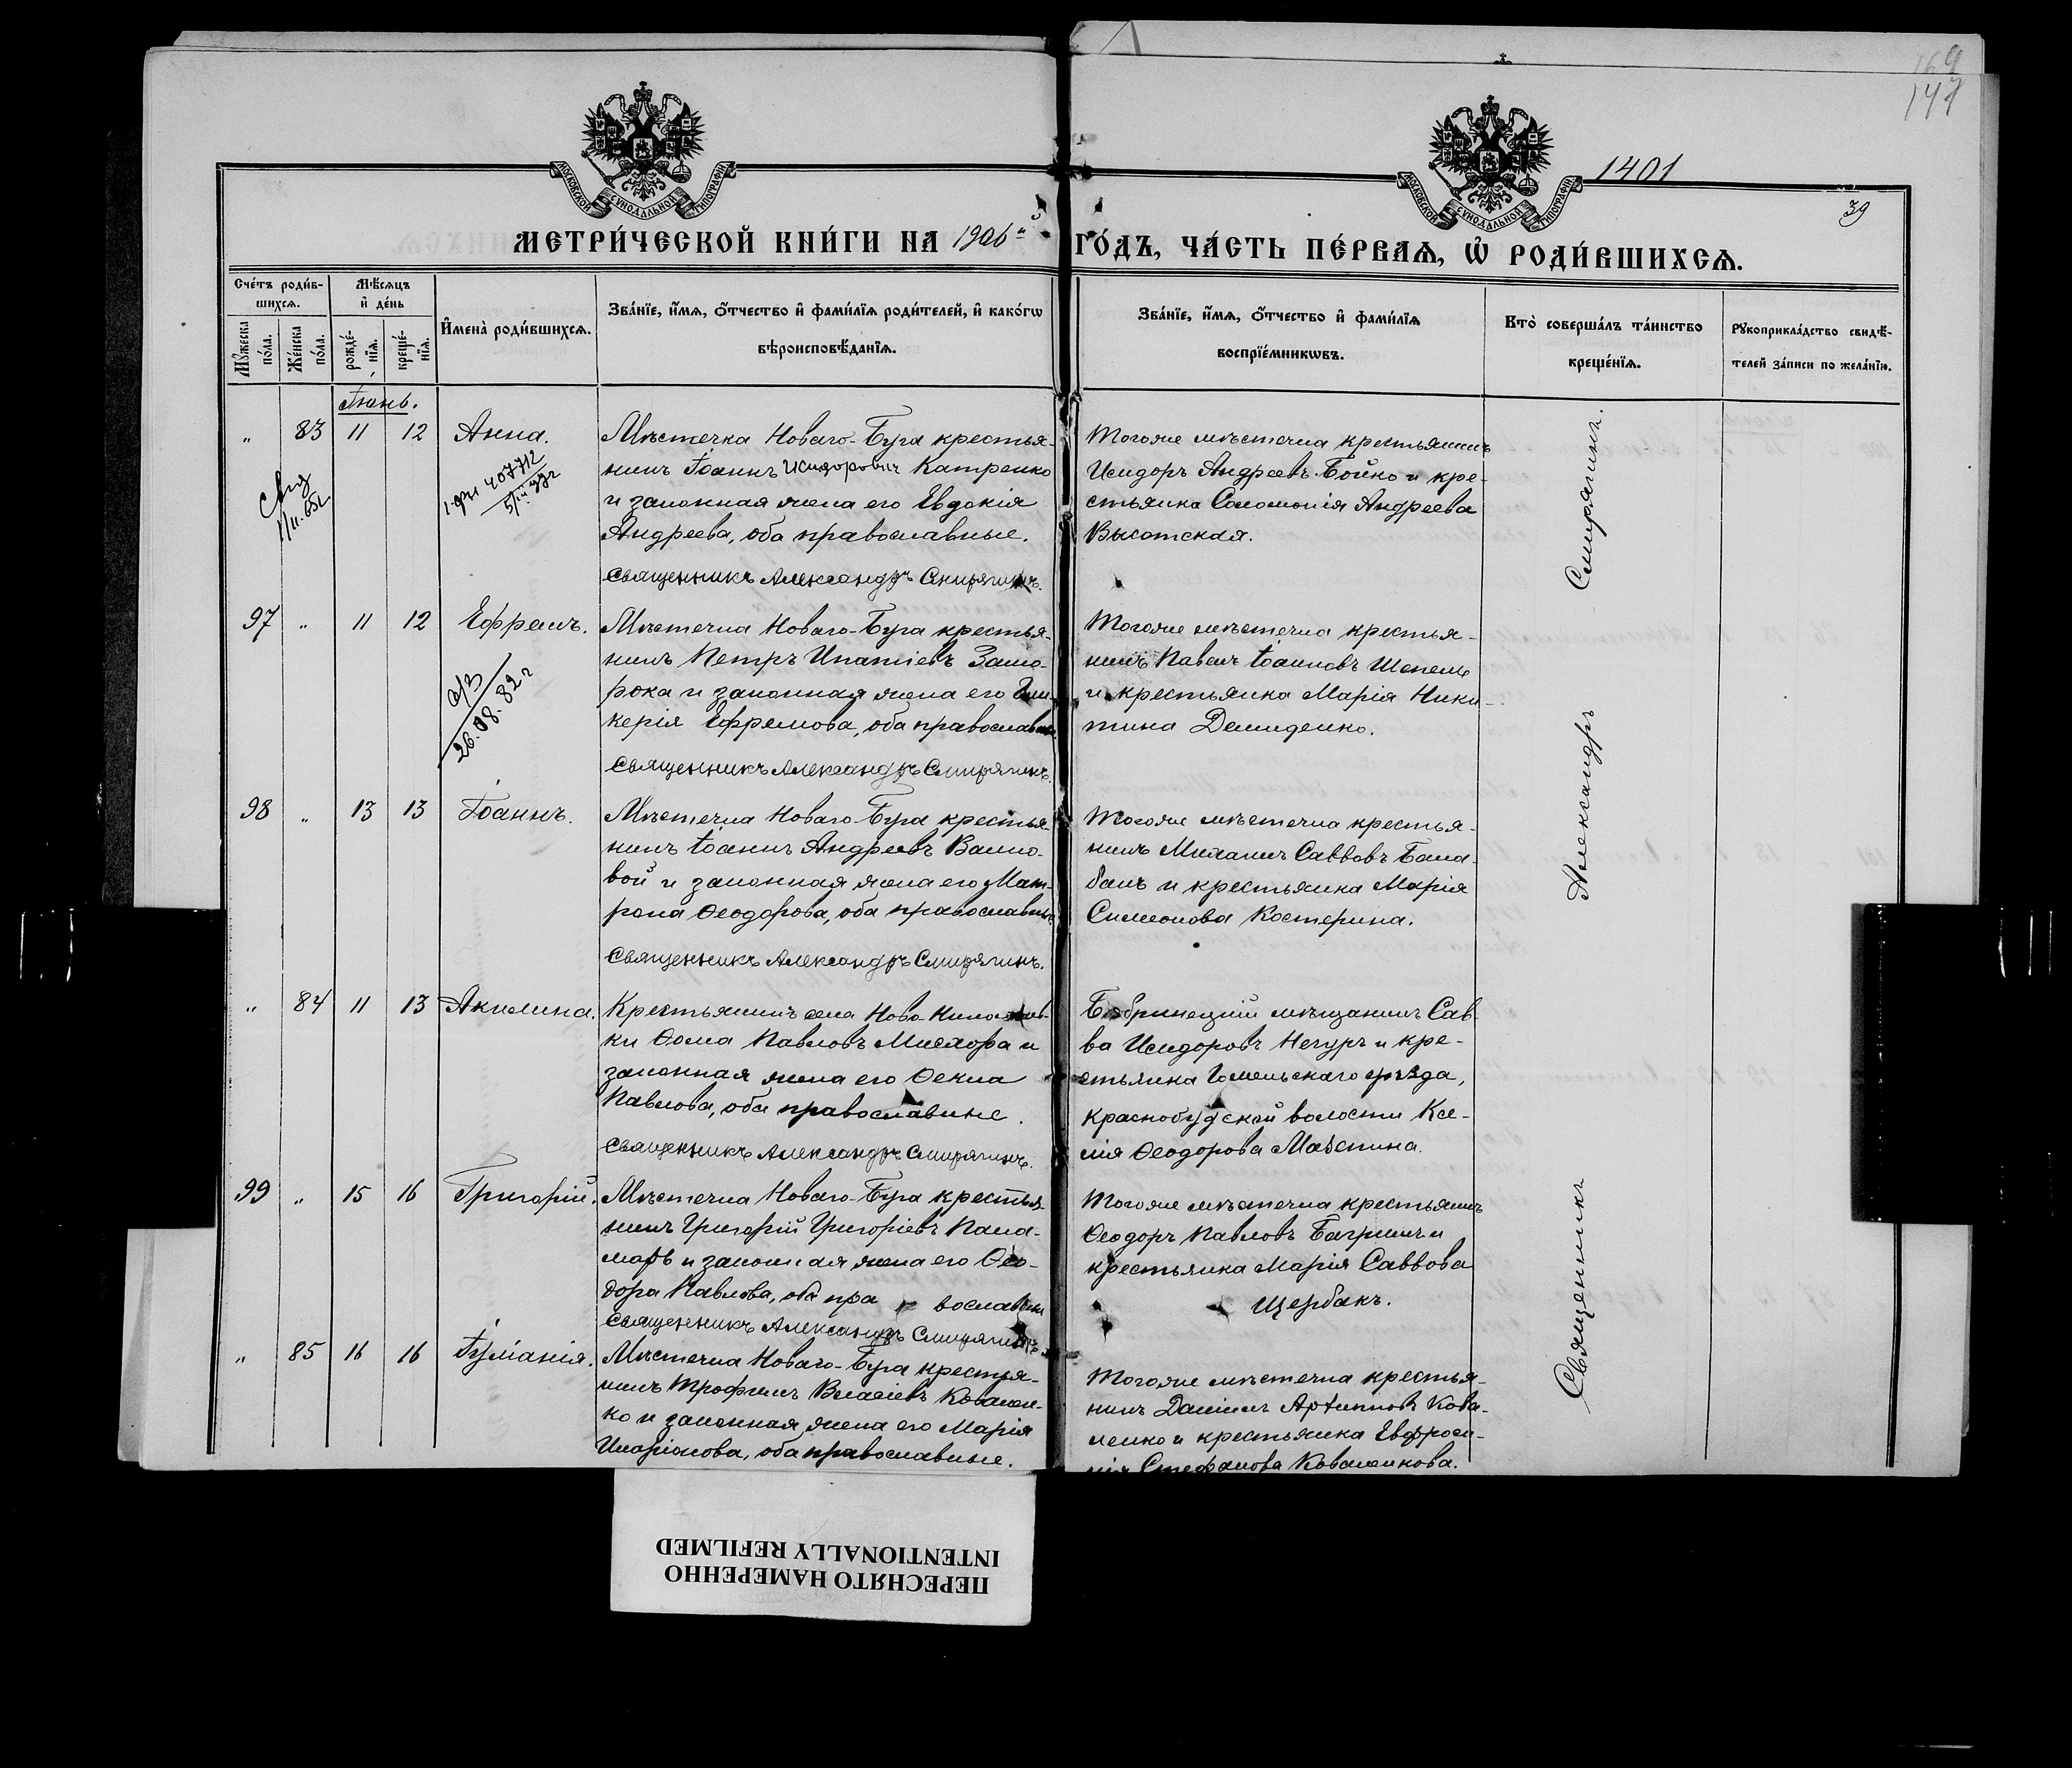 169
147
1401
39
МОСКОВСКОЙ СѴНОДАЛЬНОЙ ТИПОГРАФІИ
МОСКОВСКОЙ СѴНОДАЛЬНОЙ ТИПОГРАФІИ
МЕТРИ́ЧЕСКОЙ КНИ́ГИ НА 1906й ГО́ДЪ, ЧА́СТЬ ПЕ́РВАѦ, Ѡ҆ РОДИ́ВШИХСѦ.
Сче́тъ роди́в-
шихсѧ.
Мꙋ́жеска по́ла.
Же́нска по́ла.
Мѣ́сѧцъ
и҆ де́нь
рожде́-
нїѧ.
креще́-
нїѧ.
И҆мена̀ роди́вшихсѧ.
Зва́нїе, и҆́мѧ, ѻ҆́тчество и҆ фами́лїѧ роди́телей, и҆ како́гѡ
вѣроисповѣ́данїѧ.
Зва́нїе, и҆́мѧ, ѻ҆́тчество и҆ фами́лїѧ
воспрїе́мникѡвъ.
Кто̀ соверша́лъ та́инство
креще́нїѧ.
Рꙋкоприкла́дство свидѣ́-
телей за́писи по жела́нїю.
Іюнь.
" 83 11 12 Анна.
Мѣстечка Новаго-Буга крестья-
нинъ Іоаннъ Исидоровичъ Катренко
и законная жена его Евдокія
Андреева, оба православные.
Священникъ Александръ Смирягинъ.
407712
Тогоже мѣстечка крестьянинъ
Исидоръ Андреевъ Бойко и кре-
стьянка Соломонія Андреева
Высотская.
97 " 11 12 Ефремъ.
а/з
26.08.82г
Мѣстечка Новаго-Буга крестья-
нинъ Петръ Ипатіевъ Замо-
рока и законная жена его Гли-
керія Ефремова, оба православные.
Священникъ Александръ Смирягинъ.
Тогоже мѣстечка крестья-
нинъ Павелъ Іоанновъ Шепель
и крестьянка Марія Ники-
тина Демиденко.
98 " 13 13 Іоаннъ.
Мѣстечка Новаго-Буга крестья-
нинъ Іоаннъ Андреевъ Вално-
вой и законная жена его Мат-
рона Ѳеодорова, оба православные
Священникъ Александръ Смирягинъ.
Тогоже мѣстечка крестья-
нинъ Михаилъ Саввовъ Бала-
банъ и крестьянка Марія
Симеонова Костерина.
" 84 11 13 Акилина.
Крестьянинъ села Ново-
ки Ѳома Павловъ Мисюра и
законная жена его Ѳекла
Павлова, оба православные.
Священникъ Александръ Смирягинъ.
Бобринецкій мѣщанинъ Сав-
ва Исидоровъ Нечуръ и кре-
стьянка Гомельскаго уѣзда,
Краснобудской волости Ксе-
нія Ѳеодорова Мазепина.
99 " 15 16 Григорій.
Мѣстечка Новаго-Буга крестья-
нинъ Григорій Григоріевъ Пала-
марь и законная жена его Ѳео-
дора Павлова, оба православны
Священникъ Александръ Смирягинъ.
Тогоже мѣстечка крестьянинъ
Ѳеодоръ Павловъ Багринъ и
крестьянка Марія Саввова
Щербакъ.
" 85 16 16 Іуліанія.
Мѣстечка Новаго-Буга крестья-
нинъ Трофимъ Власіевъ Ковален-
ко и законная жена его Марія
Иларіонова, оба православные.
Тогоже мѣстечка крестья-
нинъ Даніилъ Архипповъ Кова-
ленко и крестьянка Евфроси-
нія Стефанова Коваленкова.
Священникъ Александръ Смирягинъ.
ПЕРЕСНЯТО НАМЕРЕННО
INTENTIONALLY REFILMED